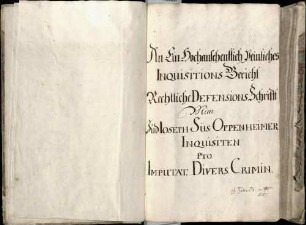 An Ein Hochansehentlich Peinliches
INQUISITIONS Gericht
Rechtliche DEFENSIONS Schrifft
Mein
Jud IOSEPH SUS OPPENHEIMER
INQUISITEN
PTO
IMPUTAT. DIVERS. CRIMIN.